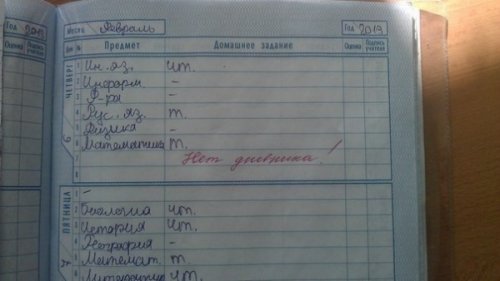 Год 2019 Месяц Февраль Год 2019
Оценка Подпись учителя Дни № Предмет Домашнее задание Оценка Подпись учителя
ЧЕТВЕРГ
1 Ин. яз. чт.
2 Информ. –
3 Ф-ра –
4 Рус. яз. т.
5 Физика –
6 Математика т.
7 Нет дневника!
8
ПЯТНИЦА
1 –
2 Биология чт.
3 История чт.
4 География –
5 Математ. т
6 Литература чт.